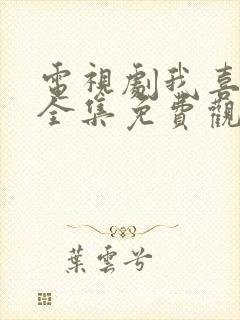 電視劇我喜
全集免費觀
葉雲兮